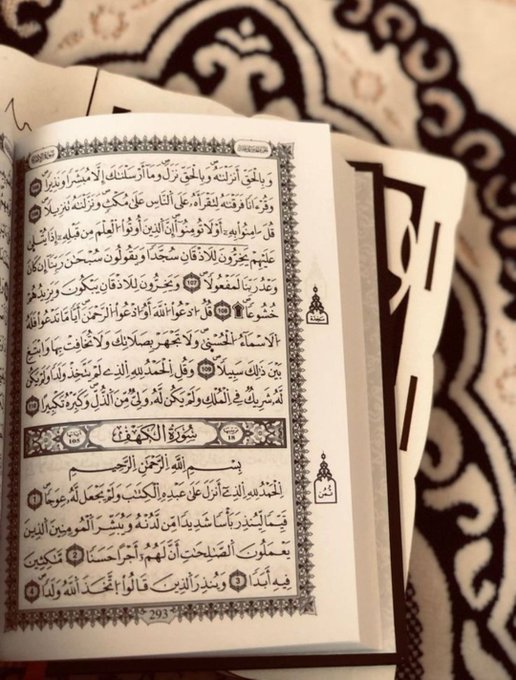 وَبِالْحَقِّ أَنزَلْنَٰهُ وَبِالْحَقِّ نَزَلَ وَمَا أَرْسَلْنَٰكَ إِلَّا مُبَشِّرًا وَنَذِيرًا 105
وَقُرْءَانًا فَرَقْنَٰهُ لِتَقْرَأَهُ عَلَى النَّاسِ عَلَىٰ مُكْثٍ وَنَزَّلْنَٰهُ تَنزِيلًا 106
قُلَ اٰمِنُوا بِهِۦ أَوْ لَا تُومِنُوا إِنَّ الَّذِينَ أُوتُوا الْعِلْمَ مِن قَبْلِهِۦ إِذَا يُتْلَىٰ
عَلَيْهِمْ يَخِرُّونَ لِلْأَذْقَانِ سُجَّدًا وَيَقُولُونَ سُبْحَٰنَ رَبِّنَا إِن كَانَ
وَعْدُ رَبِّنَا لَمَفْعُولًا 107 وَيَخِرُّونَ لِلْأَذْقَانِ يَبْكُونَ وَيَزِيدُهُمْ
خُشُوعًا ۩ 108 قُلُ ادْعُوا اللَّهَ أَوُ ادْعُوا الرَّحْمَٰنَ أَيًّا مَّا تَدْعُوا فَلَهُ
الْأَسْمَاءُ الْحُسْنَىٰ وَلَا تَجْهَرْ بِصَلَاتِكَ وَلَا تُخَافِتْ بِهَا وَابْتَغِ
بَيْنَ ذَٰلِكَ سَبِيلًا 109 وَقُلِ الْحَمْدُ لِلهِ الَّذِي لَمْ يَتَّخِذْ وَلَدًا وَلَمْ يَكُن
لَّهُ شَرِيكٌ فِي الْمُلْكِ وَلَمْ يَكُن لَّهُ وَلِيٌّ مِّنَ الذُّلِّ وَكَبِّرْهُ تَكْبِيرًا 110
سُورَةُ الْكَهْفِ
18
105
بِسْمِ اللَّهِ الرَّحْمَٰنِ الرَّحِيمِ
الْحَمْدُ لِلهِ الَّذِي أَنزَلَ عَلَىٰ عَبْدِهِ الْكِتَٰبَ وَلَمْ يَجْعَل لَّهُ عِوَجًا 1
قَيِّمًا لِّيُنذِرَ بَأْسًا شَدِيدًا مِّن لَّدُنْهُ وَيُبَشِّرَ الْمُومِنِينَ الَّذِينَ
يَعْمَلُونَ الصَّٰلِحَٰتِ أَنَّ لَهُمْ أَجْرًا حَسَنًا 2 مَّٰكِثِينَ
فِيهِ أَبَدًا 3 وَيُنذِرَ الَّذِينَ قَالُوا اتَّخَذَ اللَّهُ وَلَدًا 4
سجدة
ثمن
293